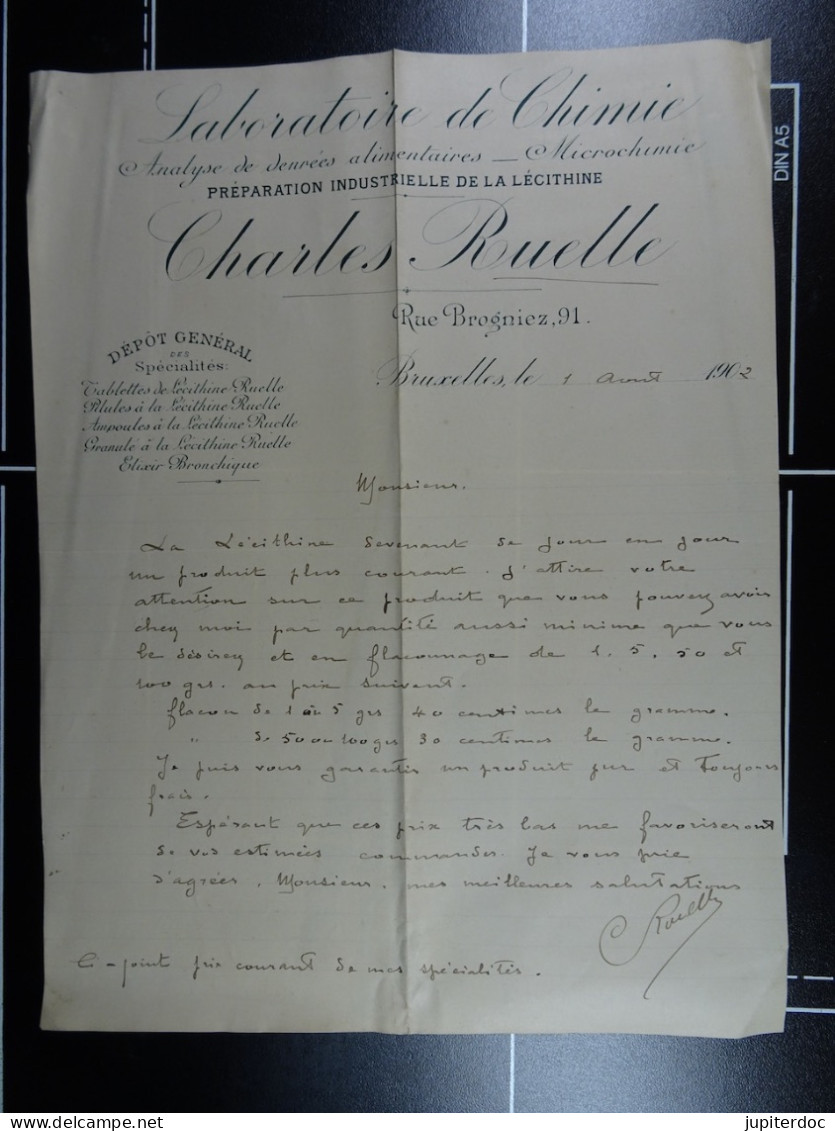 Laboratoire de Chimie
Analyse de denrées alimentaires — Microchimie
PRÉPARATION INDUSTRIELLE DE LA LÉCITHINE
Charles Ruelle
Rue Brogniez, 91.
DÉPÔT GENÉRAL
DES
Spécialités:
Tablettes de Lécithine Ruelle
Pilules à la Lécithine Ruelle
Ampoules à la Lécithine Ruelle
Granulé à la Lécithine Ruelle
Elixir Bronchique
Bruxelles, le 1 Aout 1902
Monsieur.
La Lécithine devenant de jour en jour
un produit plus courant. J'attire votre
attention sur ce produit que vous pouvez avoir
chez moi par quantité aussi minime que vous
le désirez et en flaconnage de 1, 5, 50 et
100 grs. au prix suivant.
flacon de 1 ou 5 grs 40 centimes le gramme.
" de 50 ou 100 grs 30 centimes le gramme.
Je puis vous garantir un produit pur et toujours
frais.
Espérant que ces prix très bas me favoriseront
de vos estimées commandes. Je vous prie
d'agréer, Monsieur, mes meilleures salutations
C Ruelle
Ci-joint prix courant de mes spécialités.
DIN A5
delcampe.net
jupiterdoc